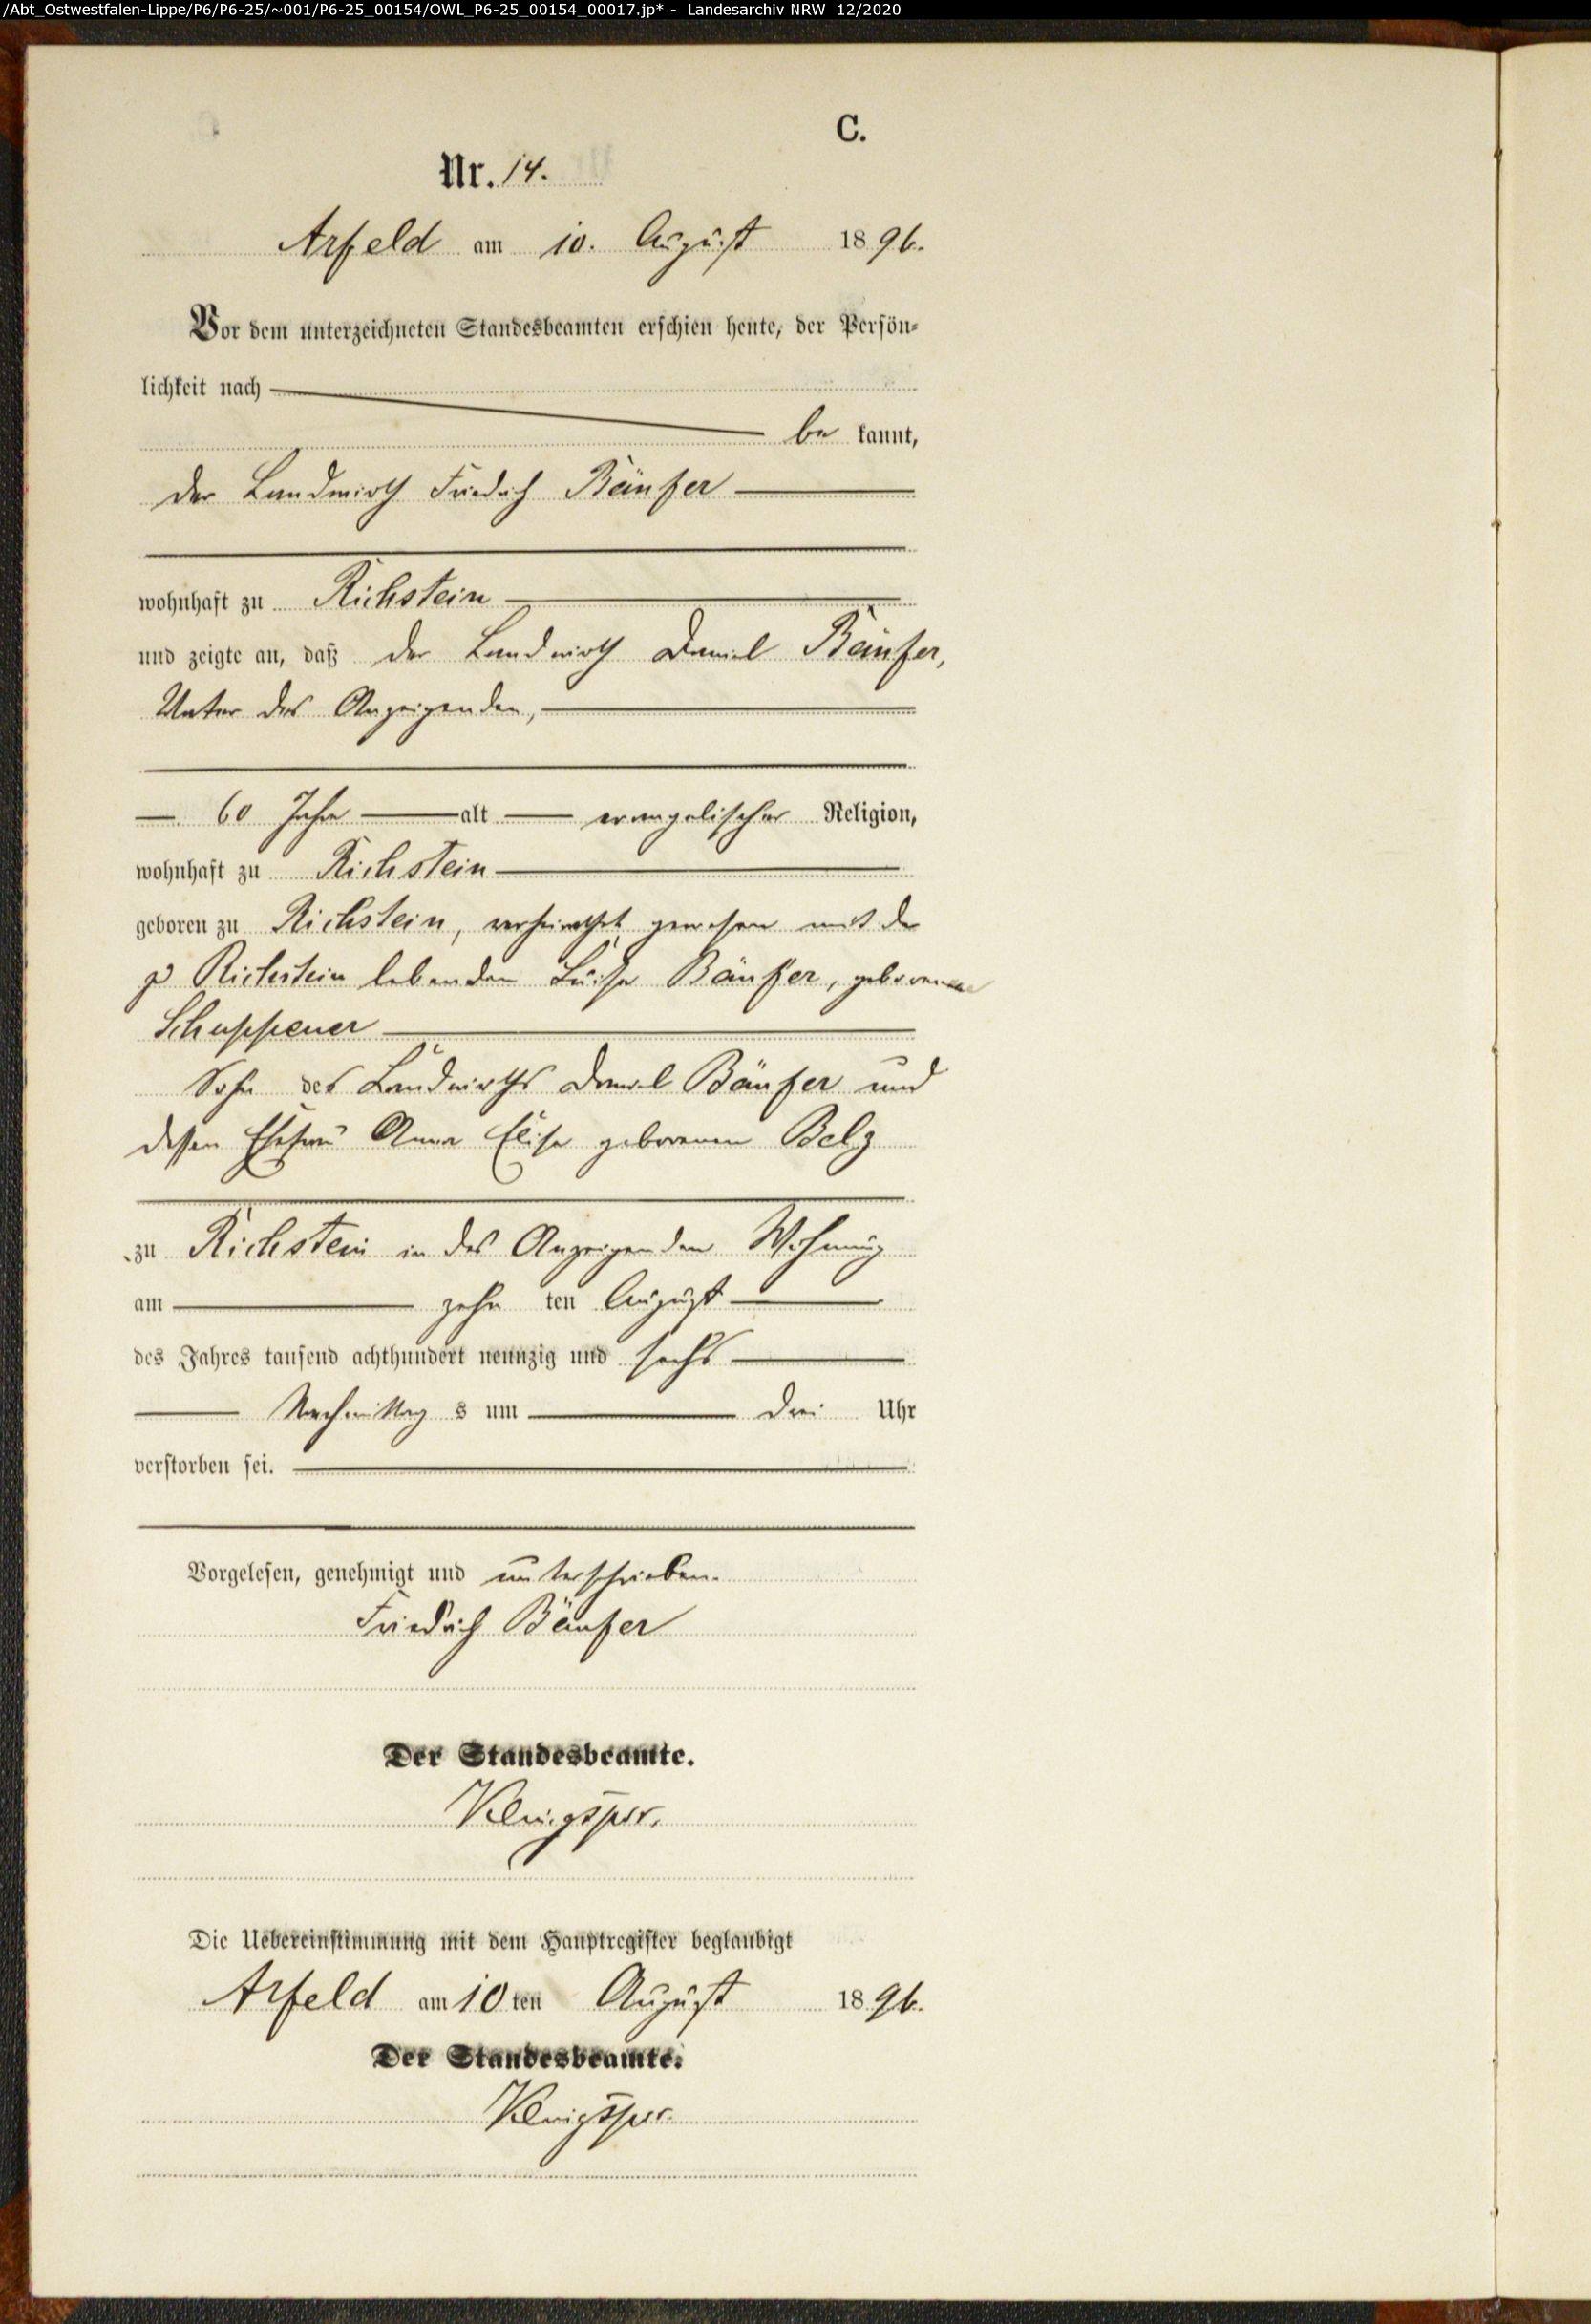 /Abt_Ostwestfalen-Lippe/P6/P6-25/~001/P6-25_00154/OWL_P6-25_00154_00017.jp* - Landesarchiv NRW 12/2020
C.
Nr. 14.
Arfeld am 10. August 1896.
Vor dem unterzeichneten Standesbeamten erschien heute, der Persön-
lichkeit nach
be kannt,
der Landwirth Friedrich Bänfer
wohnhaft zu Richstein
und zeigte an, daß der Landwirth Daniel Bänfer,
Vater des Anzeigenden,
60 Jahre alt evangelischer Religion,
wohnhaft zu Richstein
geboren zu Richstein, verheirathet gewesen mit der
zu Richstein lebenden Luise Bänfer, geborene
Schuppener
Sohn des Landwirths Daniel Bänfer und
dessen Ehefrau Anna Elise geborenen Belz
zu Richstein in des Anzeigenden Wohnung
am zehn ten August
des Jahres tausend achthundert neunzig und sechs
Nachmittag s um drei Uhr
verstorben sei.
Vorgelesen, genehmigt und unterschrieben.
Friedrich Bänfer
Der Standesbeamte.
Die Uebereinstimmung mit dem Hauptregister beglaubigt
Arfeld am 10 ten August 1896.
Der Standesbeamte.